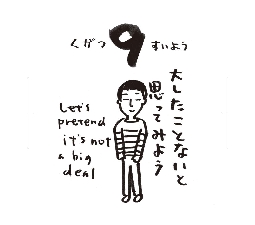 くがつ 9 すいよう
大したことないと
思ってみよう
Let's
pretend
it's not
a big
deal